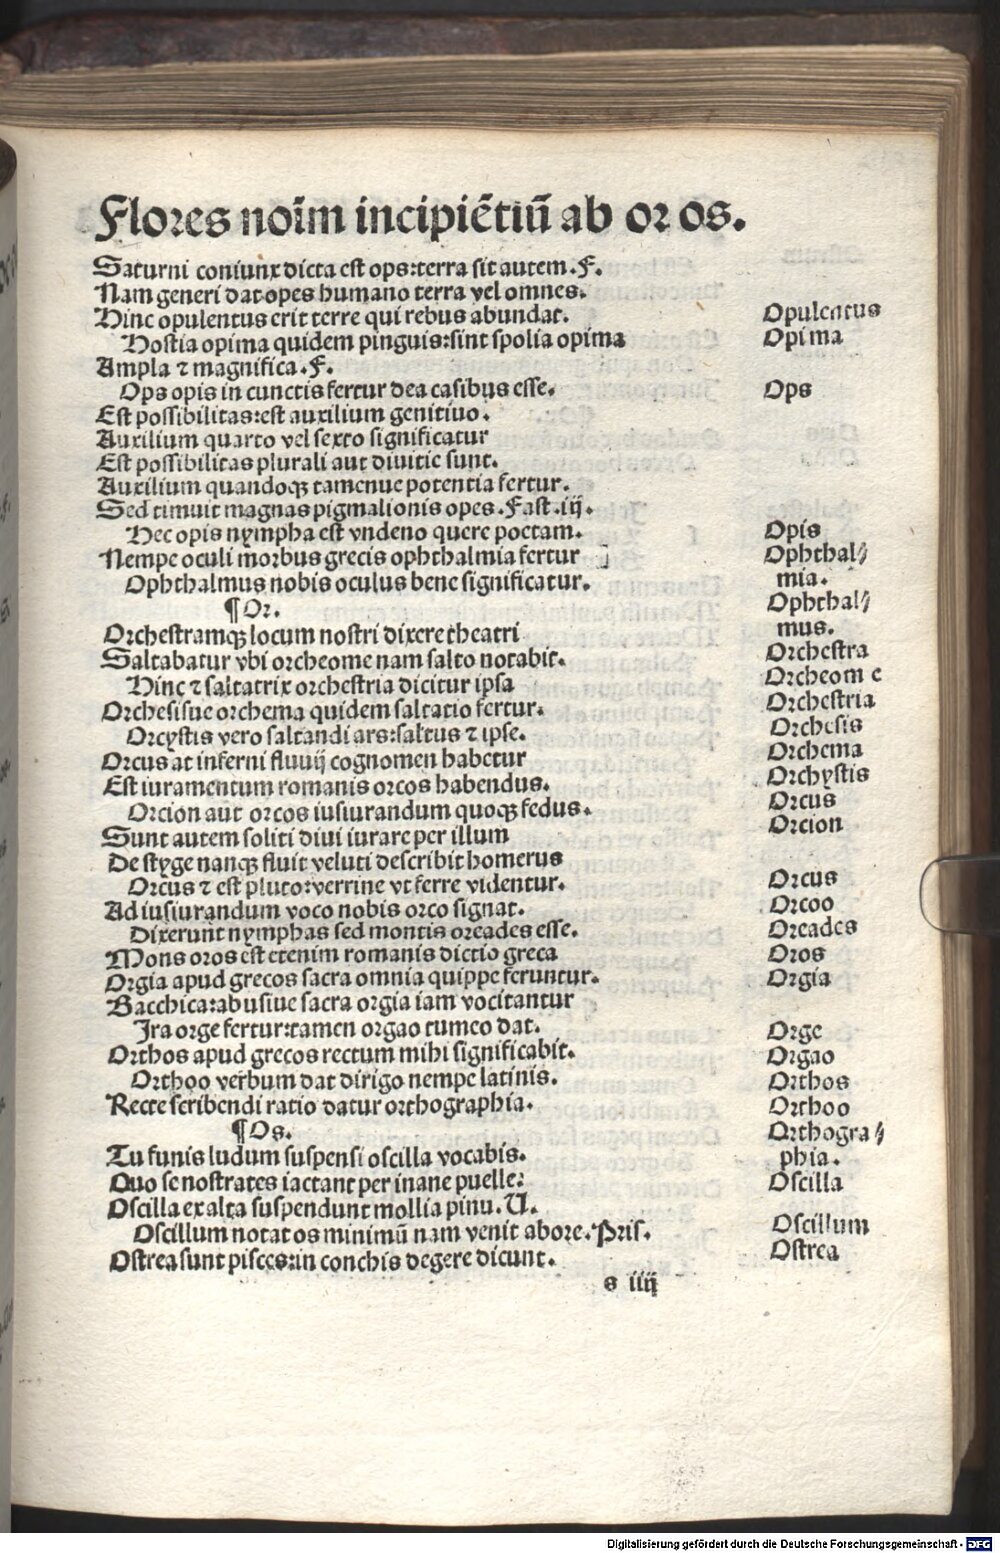 Flores noīm incipiētiū ab or os.
Saturni coniunx dicta est ops:terra sit autem.F.
Nam generi dat opes humano terra vel omnes.
Hinc opulentus erit terre qui rebus abundat. Opulentus
Hostia opima quidem pinguis:sint spolia opima Opima
Ampla ⁊ magnifica.F.
Ops opis in cunctis fertur dea casibus esse. Ops
Est possibilitas:est auxilium genitiuo.
Auxilium quarto vel sexto significatur
Est possibilitas plurali aut diuitie sunt.
Auxilium quandoqꝫ tamenue potentia fertur.
Sed timuit magnas pigmalionis opes.Fast.iij.
Hec opis nympha est vndeno quere poetam. Opis
Nempe oculi morbus grecis ophthalmia fertur Ophthal⸗
Ophthalmus nobis oculus bene significatur. mia.
¶Or. Ophthal⸗
Orchestramqꝫ locum nostri dixere theatri mus.
Saltabatur vbi orcheome nam salto notabit. Orchestra
Hinc ⁊ saltatrix orchestria dicitur ipsa Orcheome
Orchesisue orchema quidem saltatio fertur. Orchestria
Orcystis vero saltandi ars:saltus ⁊ ipse. Orchesis
Orcus at inferni fluuij cognomen habetur Orchema
Est iuramentum romanis orcos habendus. Orchystis
Orcion aut orcos iusiurandum quoqꝫ fedus. Orcus
Sunt autem soliti diui iurare per illum Orcion
De styge nanqꝫ fluit veluti describit homerus
Orcus ⁊ est pluto:verrine vt ferre videntur. Orcus
Ad iusiurandum voco nobis orco signat. Orcoo
Dixerunt nymphas sed montis oreades esse. Oreades
Mons oros est etenim romanis dictio greca Oros
Orgia apud grecos sacra omnia quippe feruntur. Orgia
Bacchica:abusiue sacra orgia iam vocitantur
Ira orge fertur:tamen orgao tumeo dat. Orge
Orthos apud grecos rectum mihi significabit. Orgao
Orthoo verbum dat dirigo nempe latinis. Orthos
Recte scribendi ratio datur orthographia. Orthoo
¶Os. Orthogra⸗
Tu funis ludum suspensi oscilla vocabis. phia.
Quo se nostrates iactant per inane puelle: Oscilla
Oscilla ex alta suspendunt mollia pinu.U.
Oscillum notat os minimū nam venit ab ore.Pris. Oscillum
Ostrea sunt pisces:in conchis degere dicunt. Ostrea
s iiij
Digitalisierung gefördert durch die Deutsche Forschungsgemeinschaft - DFG